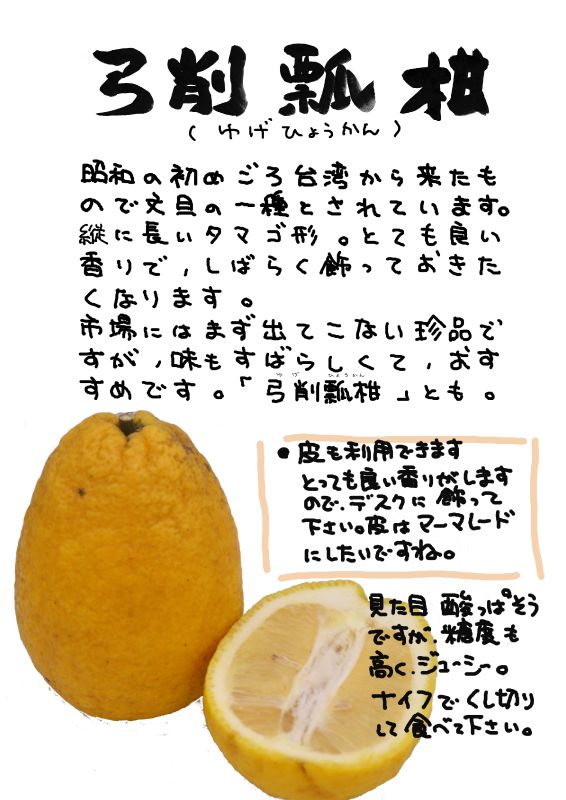 弓削瓢柑
(ゆげひょうかん)
昭和の初めごろ台湾から来たも
ので文旦の一種とされています。
縦に長いタマゴ形。とても良い
香りで,しばらく飾っておきた
くなります。
市場にはまず出てこない珍品で
すが,味もすばらしくて,おす
すめです。「弓削瓢柑」とも。
ゆげ ひょうかん
●皮も利用できます
とっても良い香りがします
ので、デスクに飾って
下さい。皮はマーマレード
にしたいですね。
見た目 酸っぱそう
ですが、糖度も
高く、ジューシー。
ナイフでくし切り
して食べて下さい。